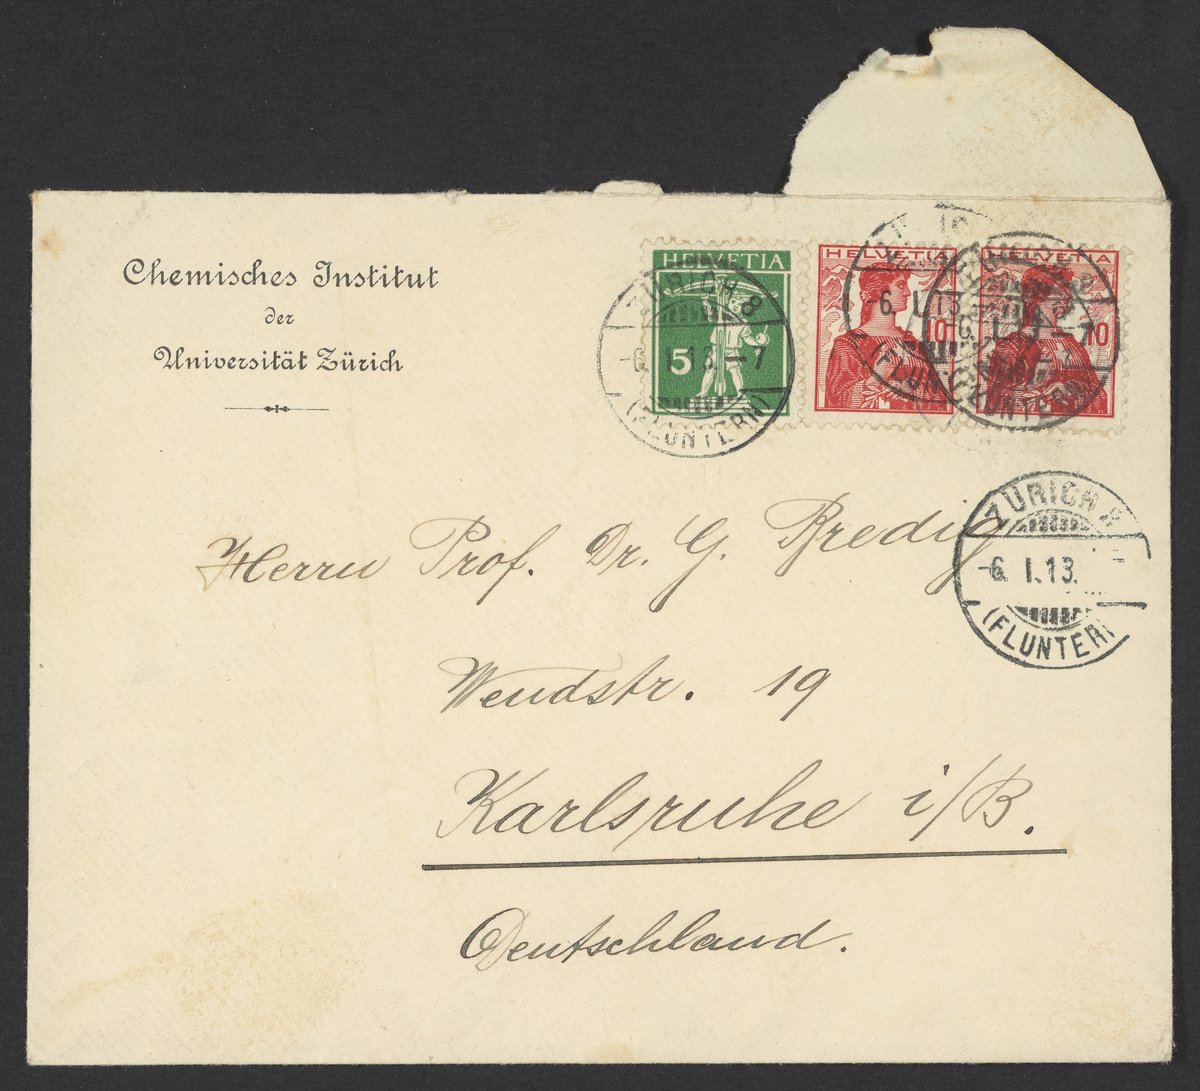 Chemisches Institut
der
Universität Zürich
HELVETIA
5
HELVETIA
10
HELVETIA
10
ZÜRICH 8
-6. I. 13. -7
(FLUNTERN)
-6. I. 13.
(FLUNTERN)
-7
(FLUNTERN)
ZÜRICH 8
-6. I. 13.
(FLUNTERN
Herrn Prof. Dr. G. Bredig
Wendstr. 19
Karlsruhe i/B.
Deutschland.